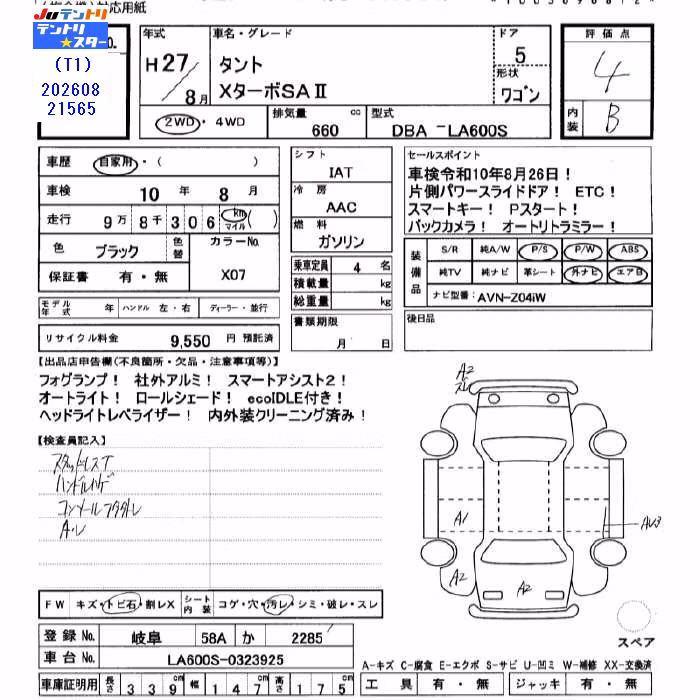 対応用紙
Juテントリ
テントリ★スター
No.
(T1)
202608
21565
年式 H27/8月
車名・グレード
タント
XターボSAⅡ
ドア 5
形状 ワゴン
評価点 4
内装 B
2WD・4WD
排気量 660 cc
型式 DBA -LA600S
車歴 自家用・( )
車検 10年 8月
走行 9万8千306 km マイル ( )
色 ブラック 色替 カラーNo. X07
保証書 有・無
モデル年式 年 ハンドル 左・右 ディーラー・並行
リサイクル料金 9,550 円 預託済
シフト
IAT
冷房
AAC
燃料
ガソリン
乗車定員 4 名
積載量 kg
総重量 kg
書類期限
月 日
セールスポイント
車検令和10年8月26日!
片側パワースライドドア! ETC!
スマートキー! Pスタート!
バックカメラ! オートリトラミラー!
装備品 S/R 純A/W P/S P/W ABS
純TV 純ナビ 革シート 外ナビ エアB
ナビ型番: AVN-Z04iW
後日品
【出品店申告欄(不良箇所・欠品・注意事項等)】
フォグランプ! 社外アルミ! スマートアシスト2!
オートライト! ロールシェード! ecoIDLE付き!
ヘッドライトレベライザー! 内外装クリーニング済み!
【検査員記入】
スタッドレス
ハンドルハゲ
A2
A1
AU3
A2
A2
FW キズ・トビ石・割レX シート内装 コゲ・穴・汚レ・シミ・破レ・スレ
登録No. 岐阜 58A か 2285
車台No. LA600S-0323925
車庫証明用 長さ 339 cm 幅 147 cm 高さ 175 cm
スペア
A-キズ C-腐食 E-エクボ S-サビ U-凹ミ W-補修 XX-交換済
工具 有・無 ジャッキ 有・無